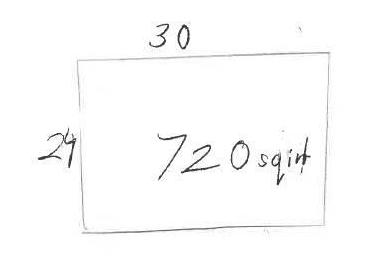 30
24
720 sqft